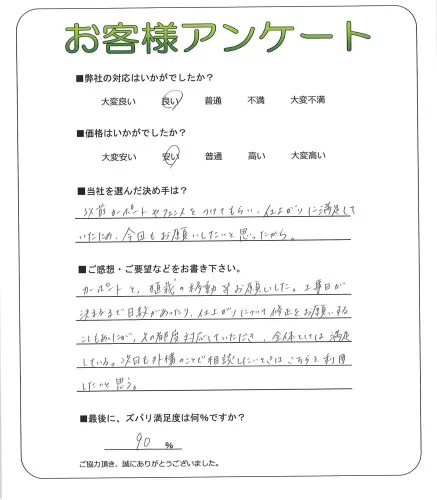 お客様アンケート
■弊社の対応はいかがでしたか?
大変良い 良い 普通 不満 大変不満
■価格はいかがでしたか?
大変安い 安い 普通 高い 大変高い
■当社を選んだ決め手は?
以前カーポートやフェンスをつけてもらい、仕上がりに満足して
いたため、今回もお願いしたいと思ったから。
■ご感想・ご要望などをお書き下さい。
カーポートと、植栽の移動をお願いした。工事日が
決まるまで日数があったり、仕上がりについて修正をお願いする
こともあったが、その都度対応していただき、全体としては満足
している。次回も外構のことで相談したいときはこちらを利用
したいと思う。
■最後に、ズバリ満足度は何%ですか?
90 %
ご協力頂き、誠にありがとうございました。